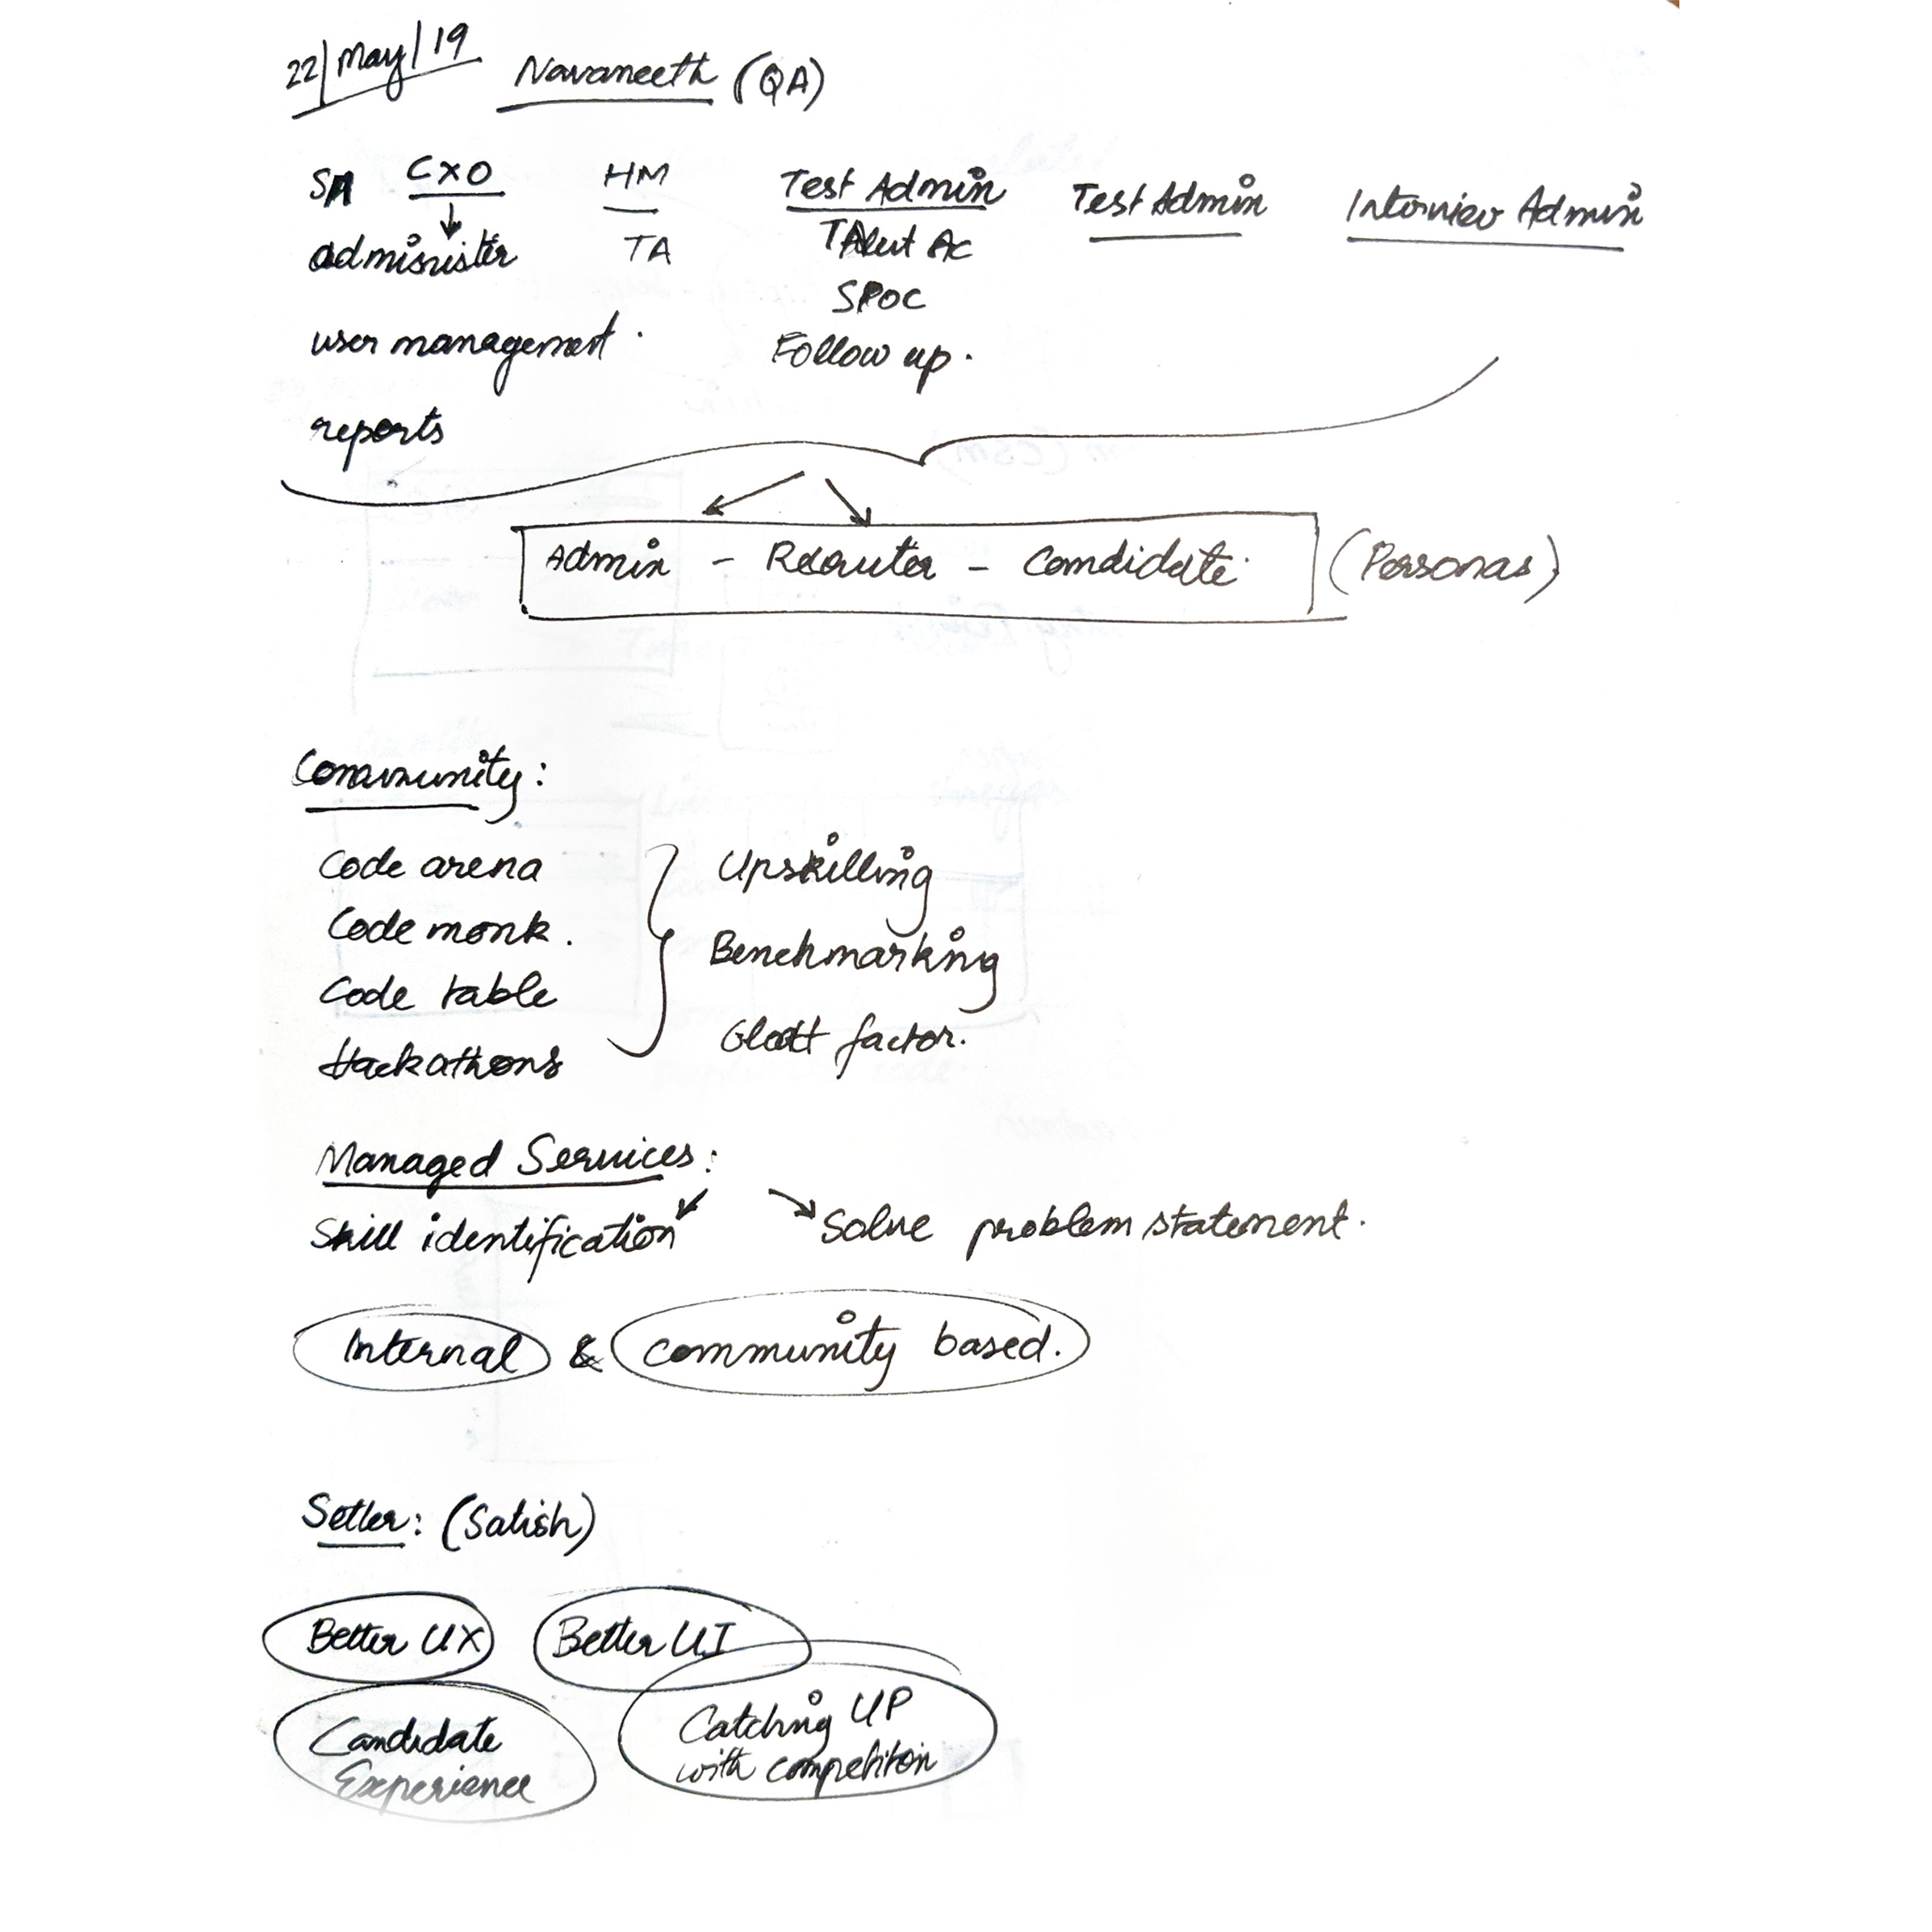 22/May/19 Navaneeth (QA)
SA CXO HM Test Admin Test Admin Interview Admin
administer TA TAlent Ac
SPOC
user management. Follow up.
reports
Admin - Recruiter - Candidate. (Personas)
Community:
Code arena Upskilling
Code monk. Benchmarking
Code table
Hackathons factor.
Managed Services:
Skill identification Solve problem statement.
Internal & community based.
Setler: (Satish)
Better UX Better UI
Candidate Catching UP
Experience with competition